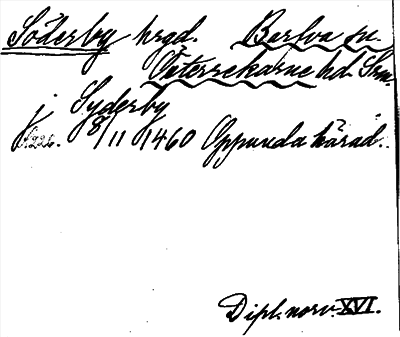 Söderby hrgd. Barlva sn.
Västerrekarne hd. Srm.
j Syderby
s.226. 8/11 1460 Oppunda härad.
Dipl. norv. XVI.